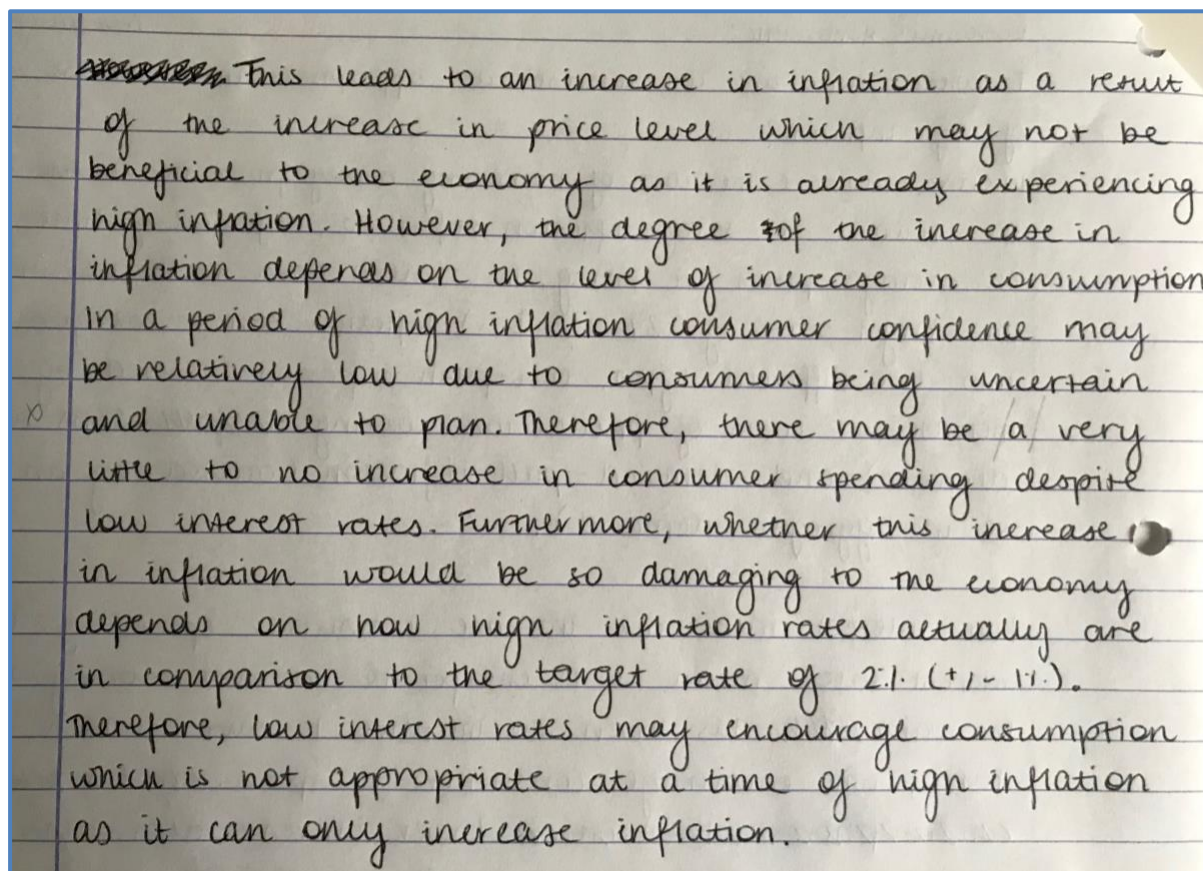 This leads to an increase in inflation as a result
of the increase in price level which may not be
beneficial to the economy as it is already experiencing
high inflation. However, the degree of the increase in
inflation depends on the level of increase in consumption
In a period of high inflation consumer confidence may
be relatively low due to consumers being uncertain
and unable to plan. Therefore, there may be a very
little to no increase in consumer spending despite
low interest rates. Furthermore, whether this increase
in inflation would be so damaging to the economy
depends on how high inflation rates actually are
in comparison to the target rate of 2% (+/- 1%).
Therefore, low interest rates may encourage consumption
which is not appropriate at a time of high inflation
as it can only increase inflation.